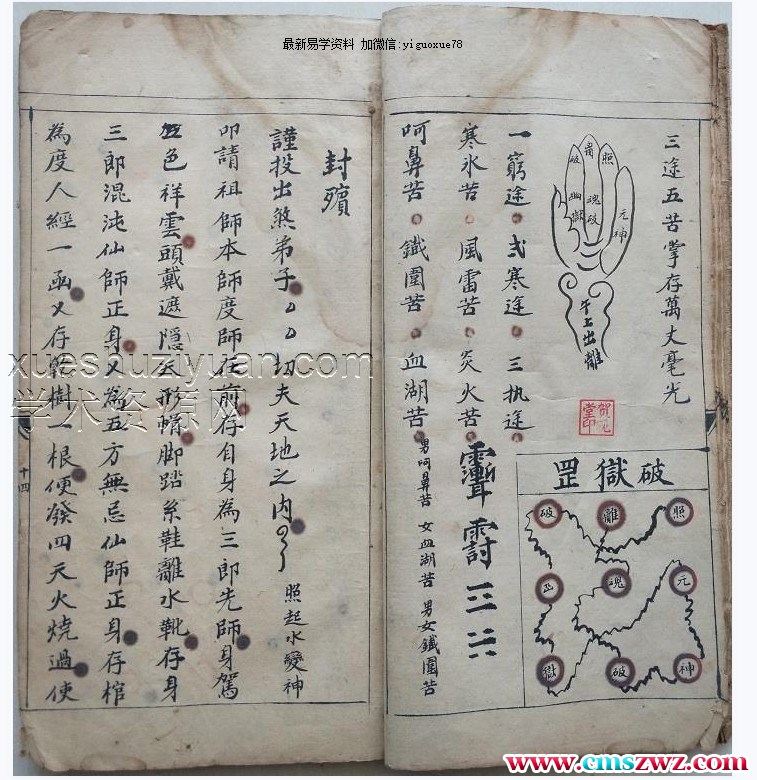 最新易学资料 加微信:yiguoxue78
三途五苦掌存萬丈毫光
破
照
幽
獄
魂
破
元神
出離
破獄罡
照
離
破
元
魂
神
破
獄
一窮途 弍寒途 三执途
寒氷苦 風雷苦 炎火苦
呵鼻苦 鐵圍苦 血湖苦
男呵鼻苦 女血湖苦 男女鐵圍苦
封殯
謹投出煞弟子
切夫天地之内
照起水變神
叩請祖師本師度師在前存自身為三郎先師身駕
五色祥雲頭戴遮隱天形帽脚踏糸鞋離水靴存身
三郎混沌仙師正身又為五方無忌仙師正身存棺
為度人經一函又存乾樹一根便發四天火燒過使
十四
xueshuziyuan.com
学术资源网
www.cmszwz.com